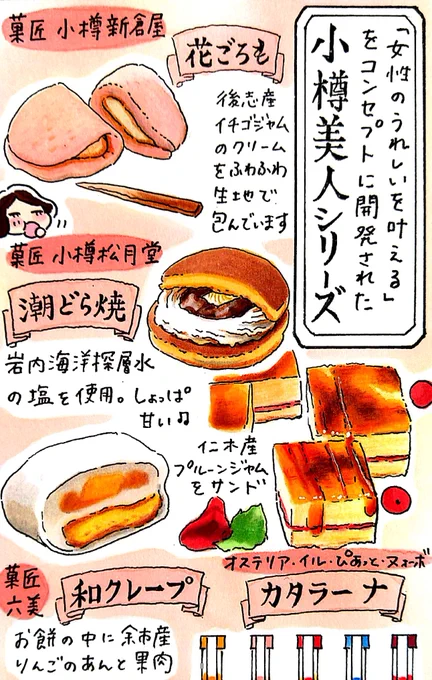 「女性のうれしいを叶える」
をコンセプトに開発された
小樽美人シリーズ
菓匠 小樽新倉屋
花ごろも
後志産
イチゴジャム
のクリーム
をふわふわ
生地で
包んでいます
菓匠 小樽松月堂
潮どら焼
岩内海洋探層水
の塩を使用。しょっぱ
甘い♫
仁木産
プルーンジャム
をサンド
オステリア・イル・ぴあっと・ヌォーボ
カタラーナ
菓匠
六美
和クレープ
お餅の中に余市産
りんごのあんと果肉